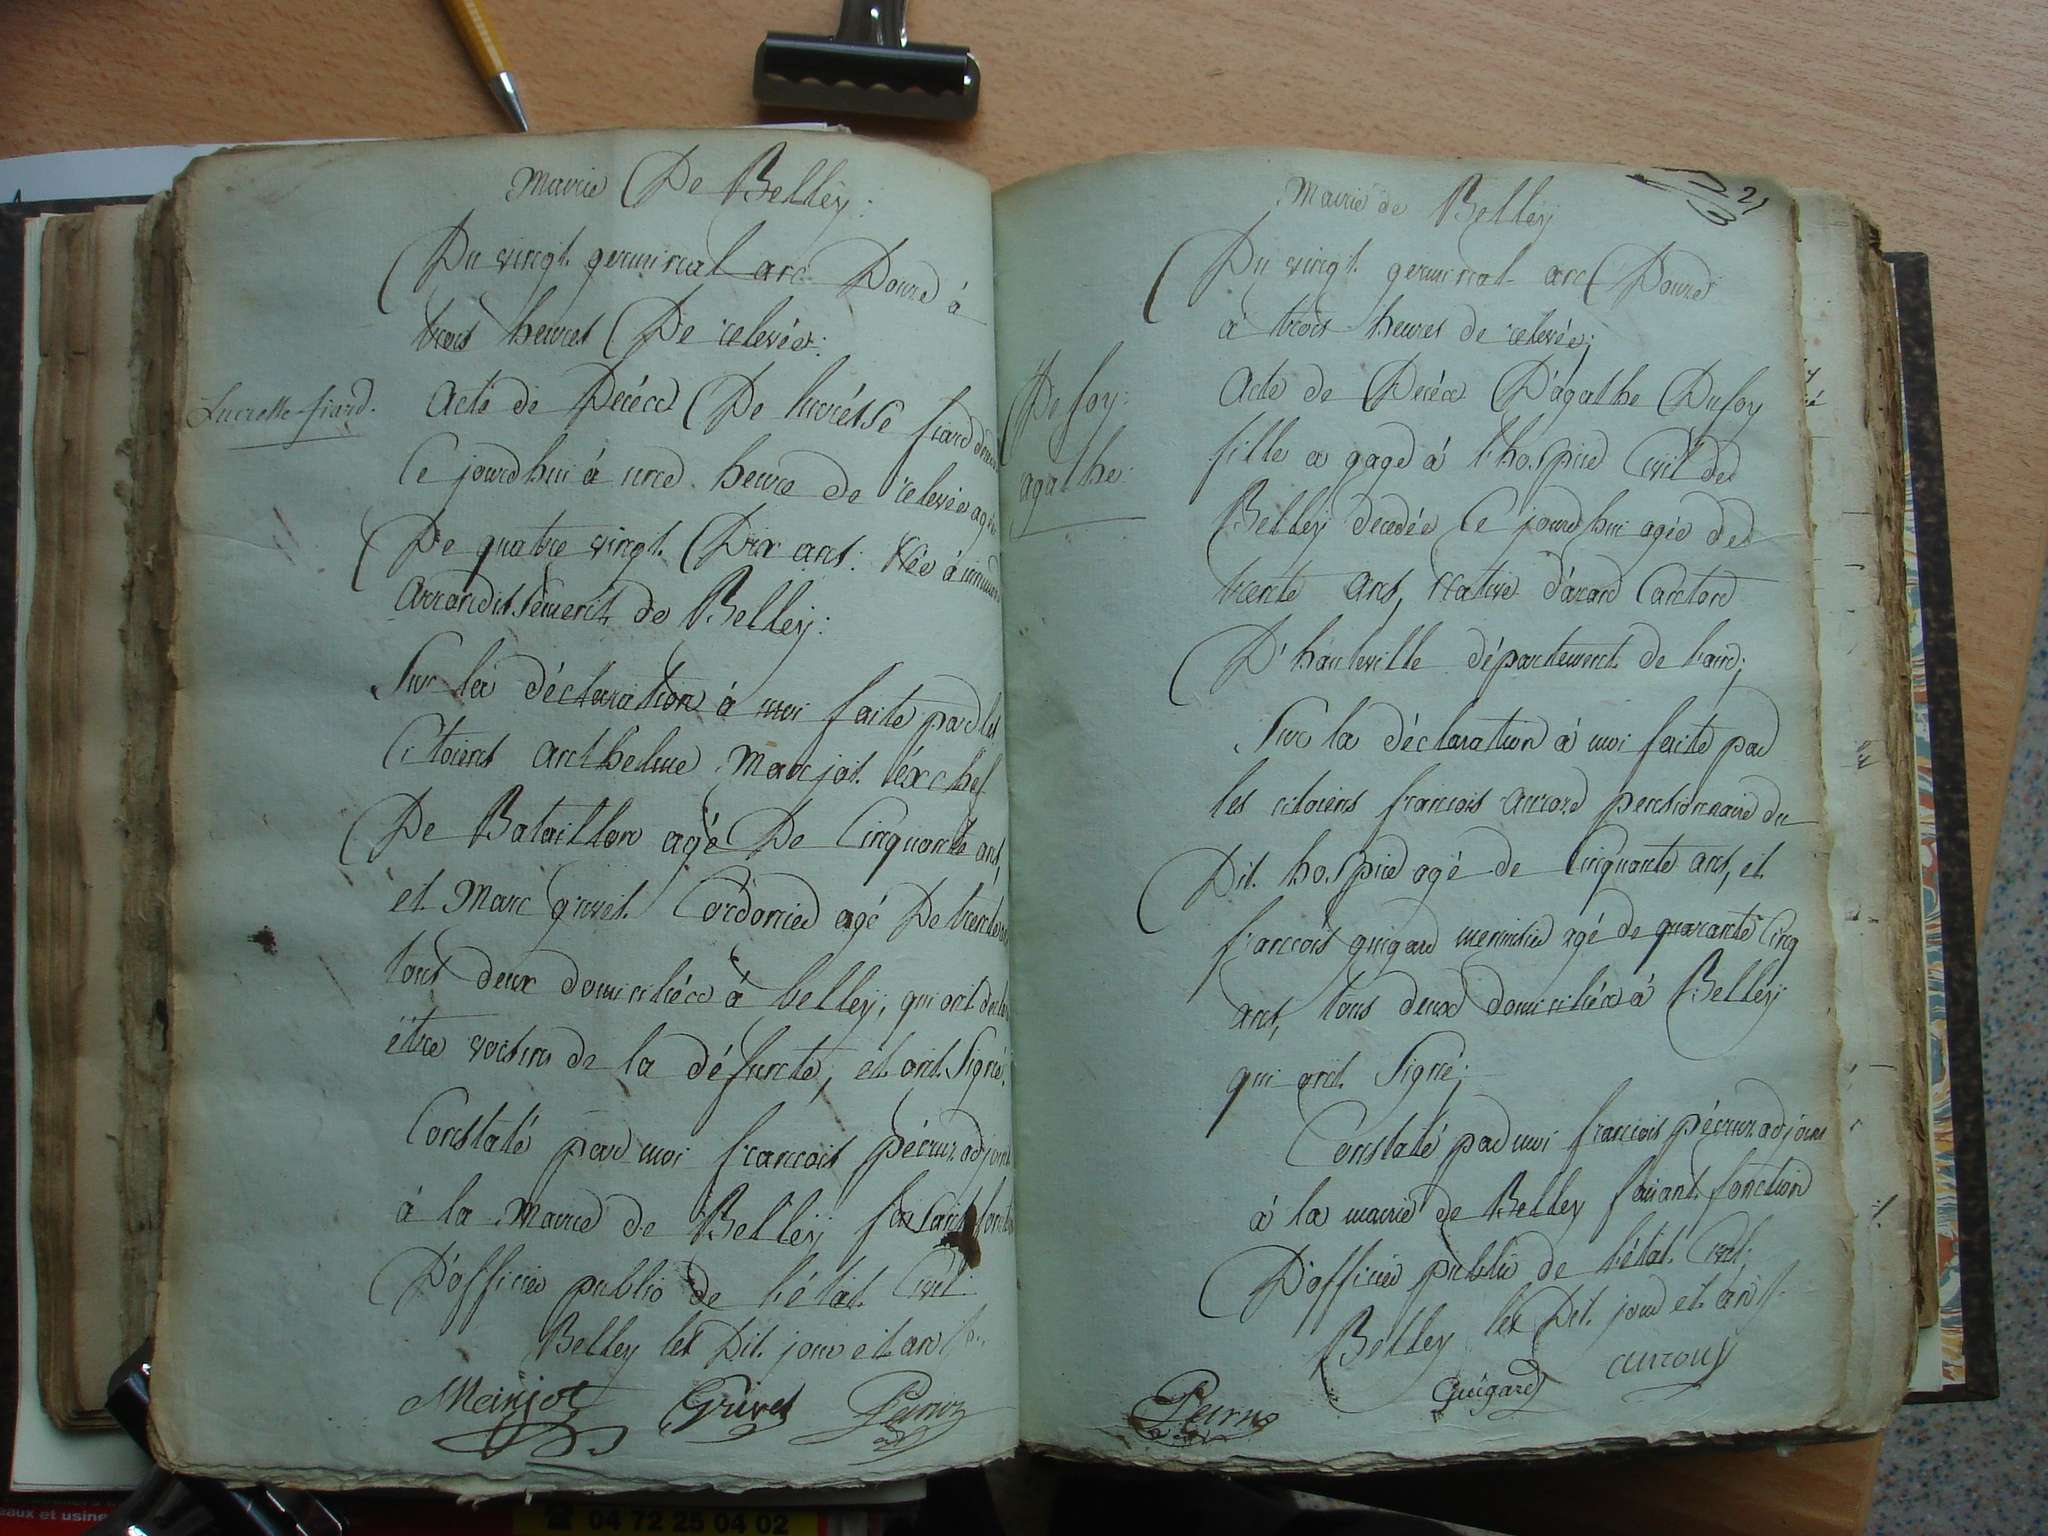 Mairie De Belley:
Du vingt germinal an Douze à
trois heures De relevée:
Lucresse fiard.
Acte de Décéd De lucrésse fiard
Ce jourdhui à une heure de relevée agée
De quatre vingt Dix ans: Née à
arrondissement de Belley:
Sur la déclaration à moi faite par les
Citoiens anthelme Manjot éxchef
De Bataillon agé De Cinquante ans,
et Marc grivet Cordonier agé De trente
tous deux domiciliéd à belley, qui ont
être voisins de la défuncte, et ont Signé.
Constaté par moi françois pécruz adjoint
à la Mairie de Belley faisant
D'officier public de l'état Civil
Belley les Dit jour et an
Manjot Grivet
Mairie de Belley
21
Du vingt germinal an Douze
à trois heures de relevée;
Defoy:
agathe:
Acte de Décéd D'agathe Dufoy
fille a gage à l'hospice Civil de
Belley decedée Ce jourdhui agée de
trente ans, native d'aran Canton
D'hauteville département de l'ain;
Sur la déclaration à moi faite par
les citoiens françois auroze pensionnaire du
Dit hospice agé de Cinquante ans, et
françois guigard menuisier agé de quarante Cinq
ans, tous deux domiciliéd à Belley
qui ont Signé;
Constaté par moi françois pécruz adjoint
à la mairie de Belley faisant fonction
D'officier public de l'état Civil,
Belley les Dit jour et an
Guigard
04 72 25 04 02